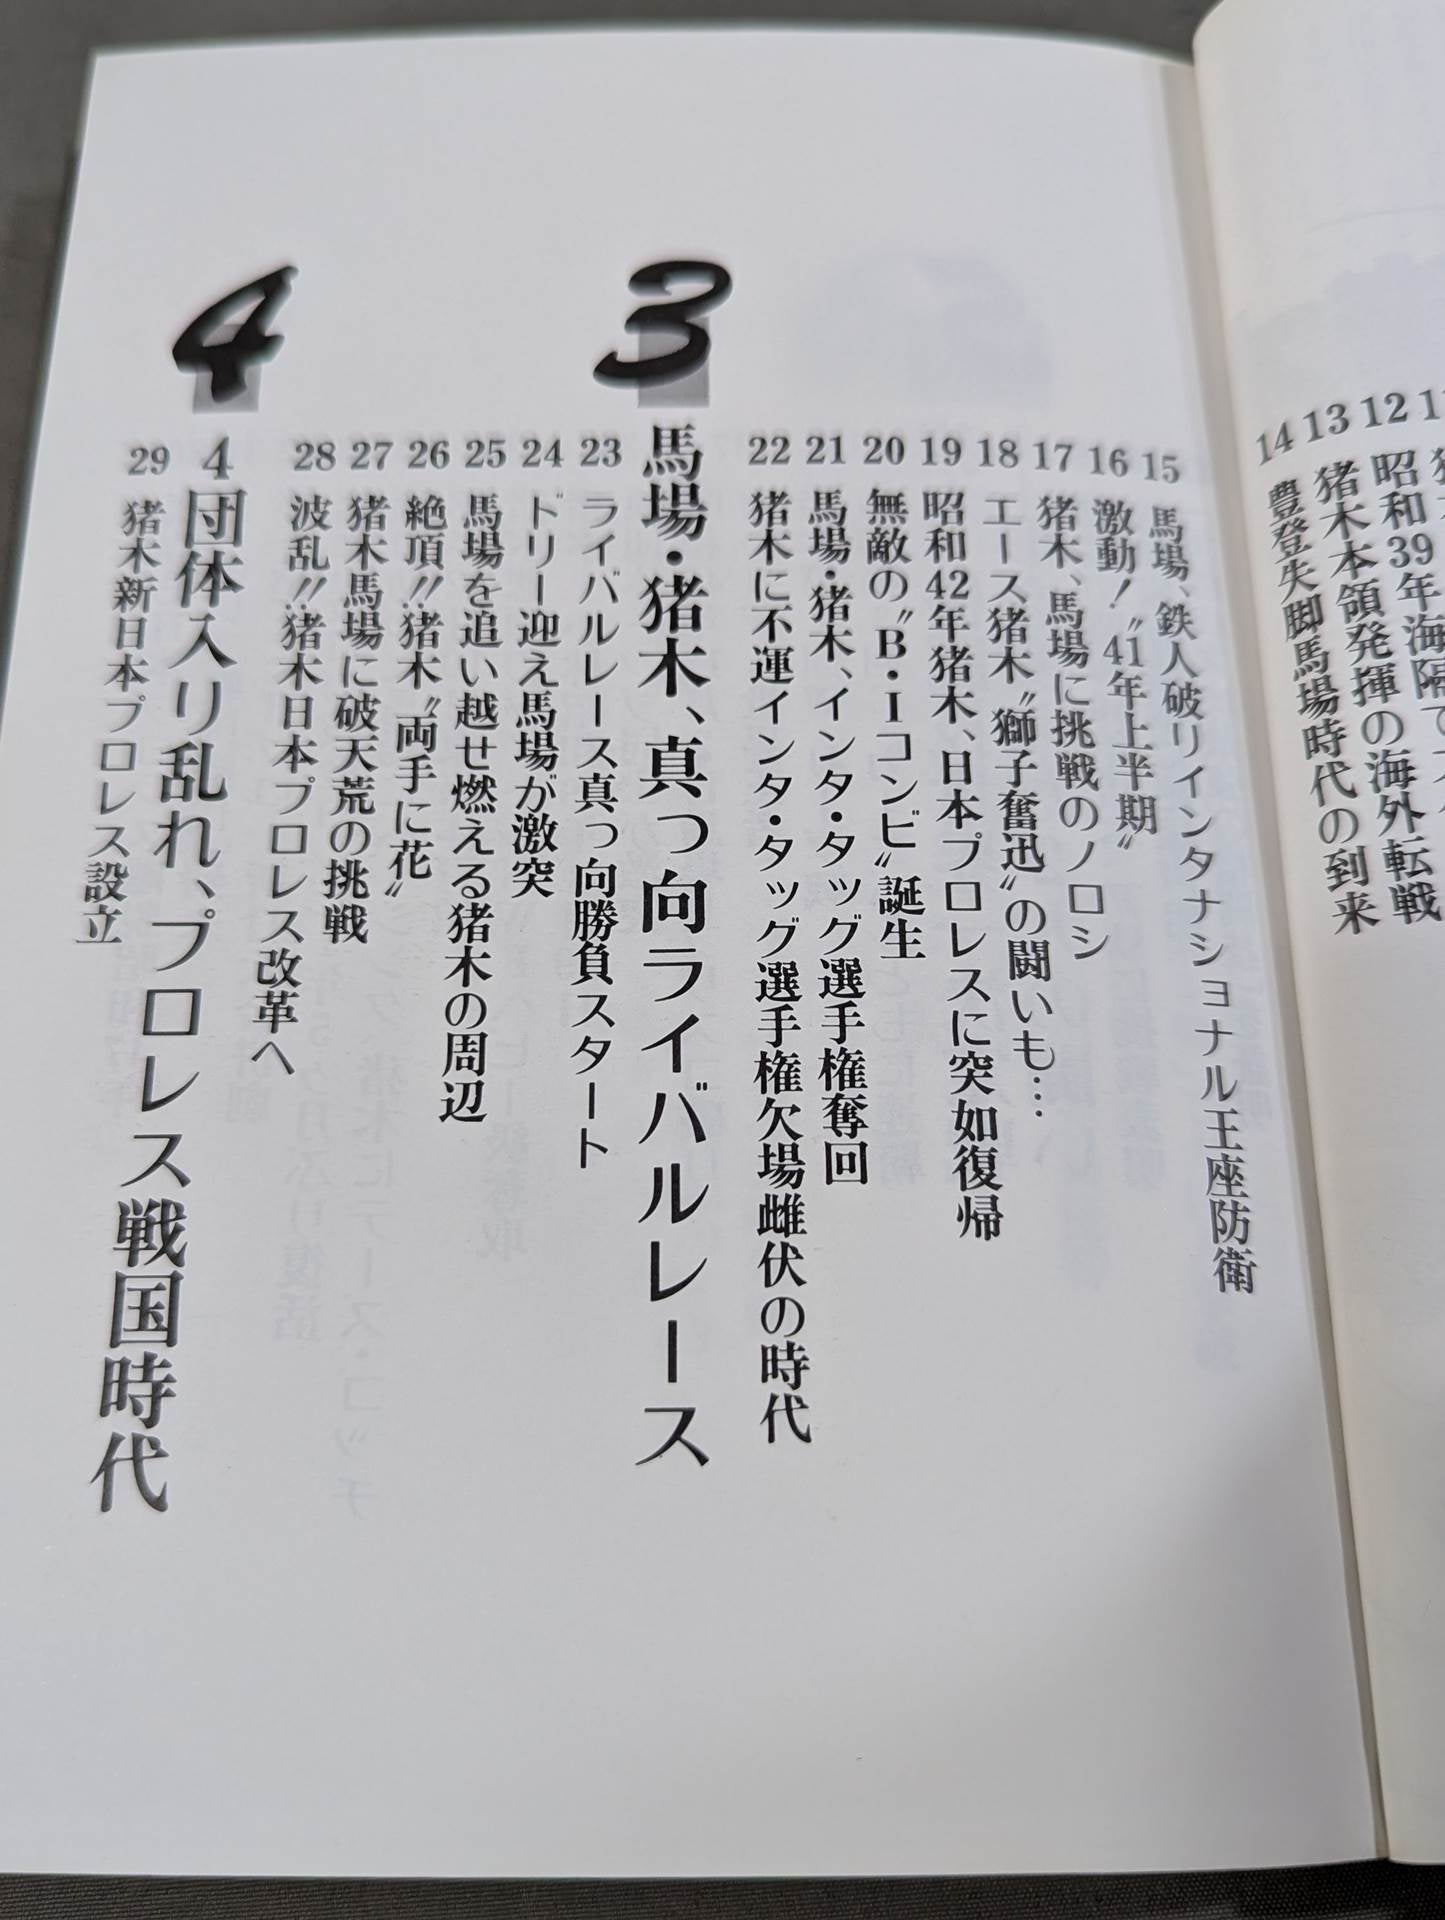 12 昭和39年海隔て
13 猪木本領発揮の海外転戦
14 豊登失脚馬場時代の到来
15 馬場、鉄人破りインタナショナル王座防衛
16 激動！〝41年上半期〟
17 猪木、馬場に挑戦のノロシ
18 エース猪木〝獅子奮迅〟の闘いも…
19 昭和42年猪木、日本プロレスに突如復帰
20 無敵の〝B・Iコンビ〟誕生
21 馬場・猪木、インタ・タッグ選手権奪回
22 猪木に不運インタ・タッグ選手権欠場雌伏の時代
3 馬場・猪木、真っ向ライバルレース
23 ライバルレース真っ向勝負スタート
24 ドリー迎え馬場が激突
25 馬場を追い越せ燃える猪木の周辺
26 絶頂!!猪木〝両手に花〟
27 猪木馬場に破天荒の挑戦
28 波乱!!猪木日本プロレス改革へ
4 4団体入り乱れ、プロレス戦国時代
29 猪木新日本プロレス設立